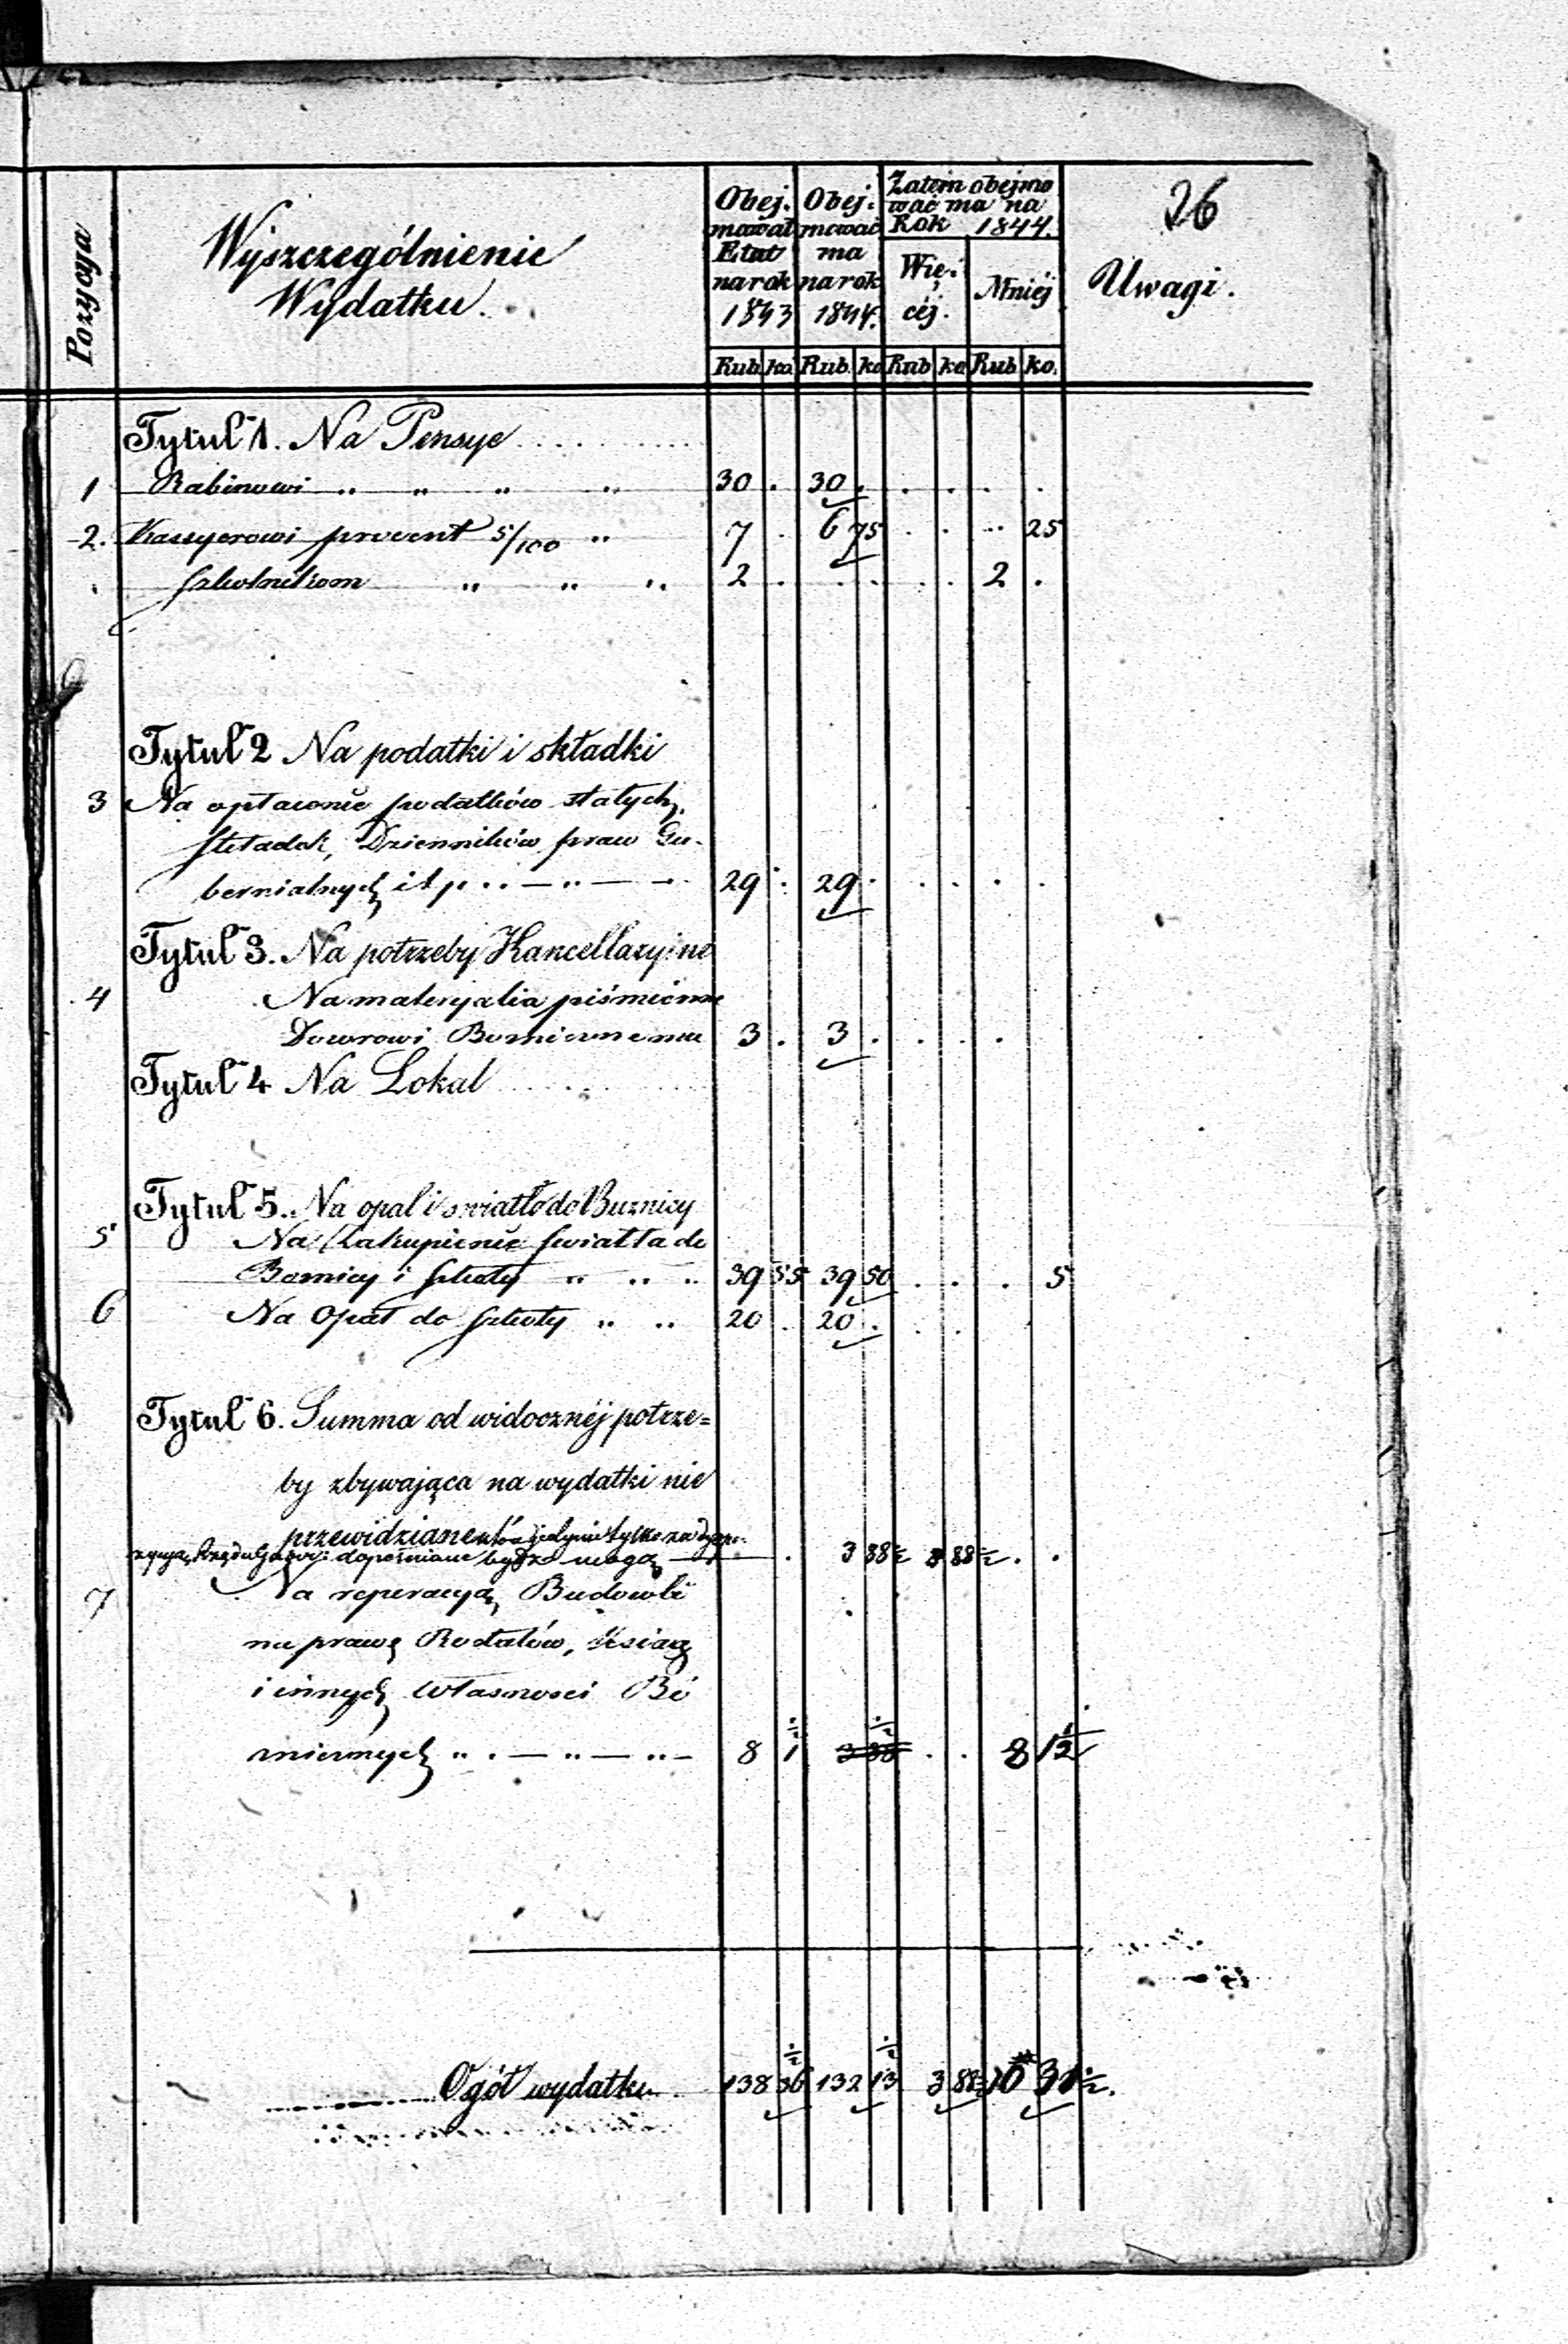 26
Pozycya
Wyszczególnienie
Wydatku.
Obej:
mował
Etat
na rok
1843
Obej:
mować
ma
na rok
1844.
Zatem obejmo
wać ma na
Rok 1844.
Wię:
céj.
Mniéj
Uwagi.
Rub. ko. Rub. ko Rub ko Rub ko.
Tytuł 1. Na Pensye
1 Rabinowi " " " " 30 . 30 . . . . .
2. Kassyerowi procent 5/100 " 7 . 6 75 . . .. 25
Szkolnikom " " " 2 . . . . . 2 .
Tytuł 2 Na podatki i składki
3 Na opłacenie podatków stałych,
składek, Dzienników praw Gu-
bernialnych i t p 29 . 29 . . . . .
Tytuł 3. Na potrzeby Kancellaryine
4 Na materyalia piśmienne
Dozorowi Bożnicznemu 3 . 3 . . . .
Tytuł 4 Na Lokal
Tytuł 5. Na opał i światło do Bużnicy
5 Na Zakupienie światła do
Bożnicy i szkoły " " " 39 55 39 50 . . . 5
6 Na Opał do szkoły " " 20 . 20 . . .
Tytuł 6. Summa od widocznéj potrze=
by zbywająca na wydatki nie
przewidziane które jedynie tylko za decy
zyą Rządu Gub: dopełniane być mogą — . 3 88½ 3 88½ . .
7 Na reperacyą Budowli
naprawę Rodałów, Ksiąg
i innych Własności Bó
żnicznych " . — " — " — 8 1½ 3 88½ . . 8 1½
Ogół wydatku 138 56½ 132 13½ 3 88½ 10 31½.